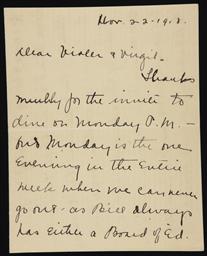 Nov. 22-1918.
Dear Violer & Virgil.
Thanks
muchly for the invite to
dine on Monday P.M. -
but Monday is the one
Evening in the Entire
week when we can never
go out - as Bill always
has either a Board of Ed.